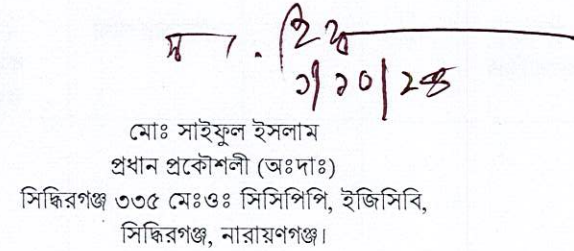 মোঃ সাইফুল ইসলাম
প্রধান প্রকৌশলী (অঃদাঃ)
সিদ্ধিরগঞ্জ ৩৩৫ মেঃওঃ সিসিপিপি, ইজিসিবি,
সিদ্ধিরগঞ্জ, নারায়ণগঞ্জ।